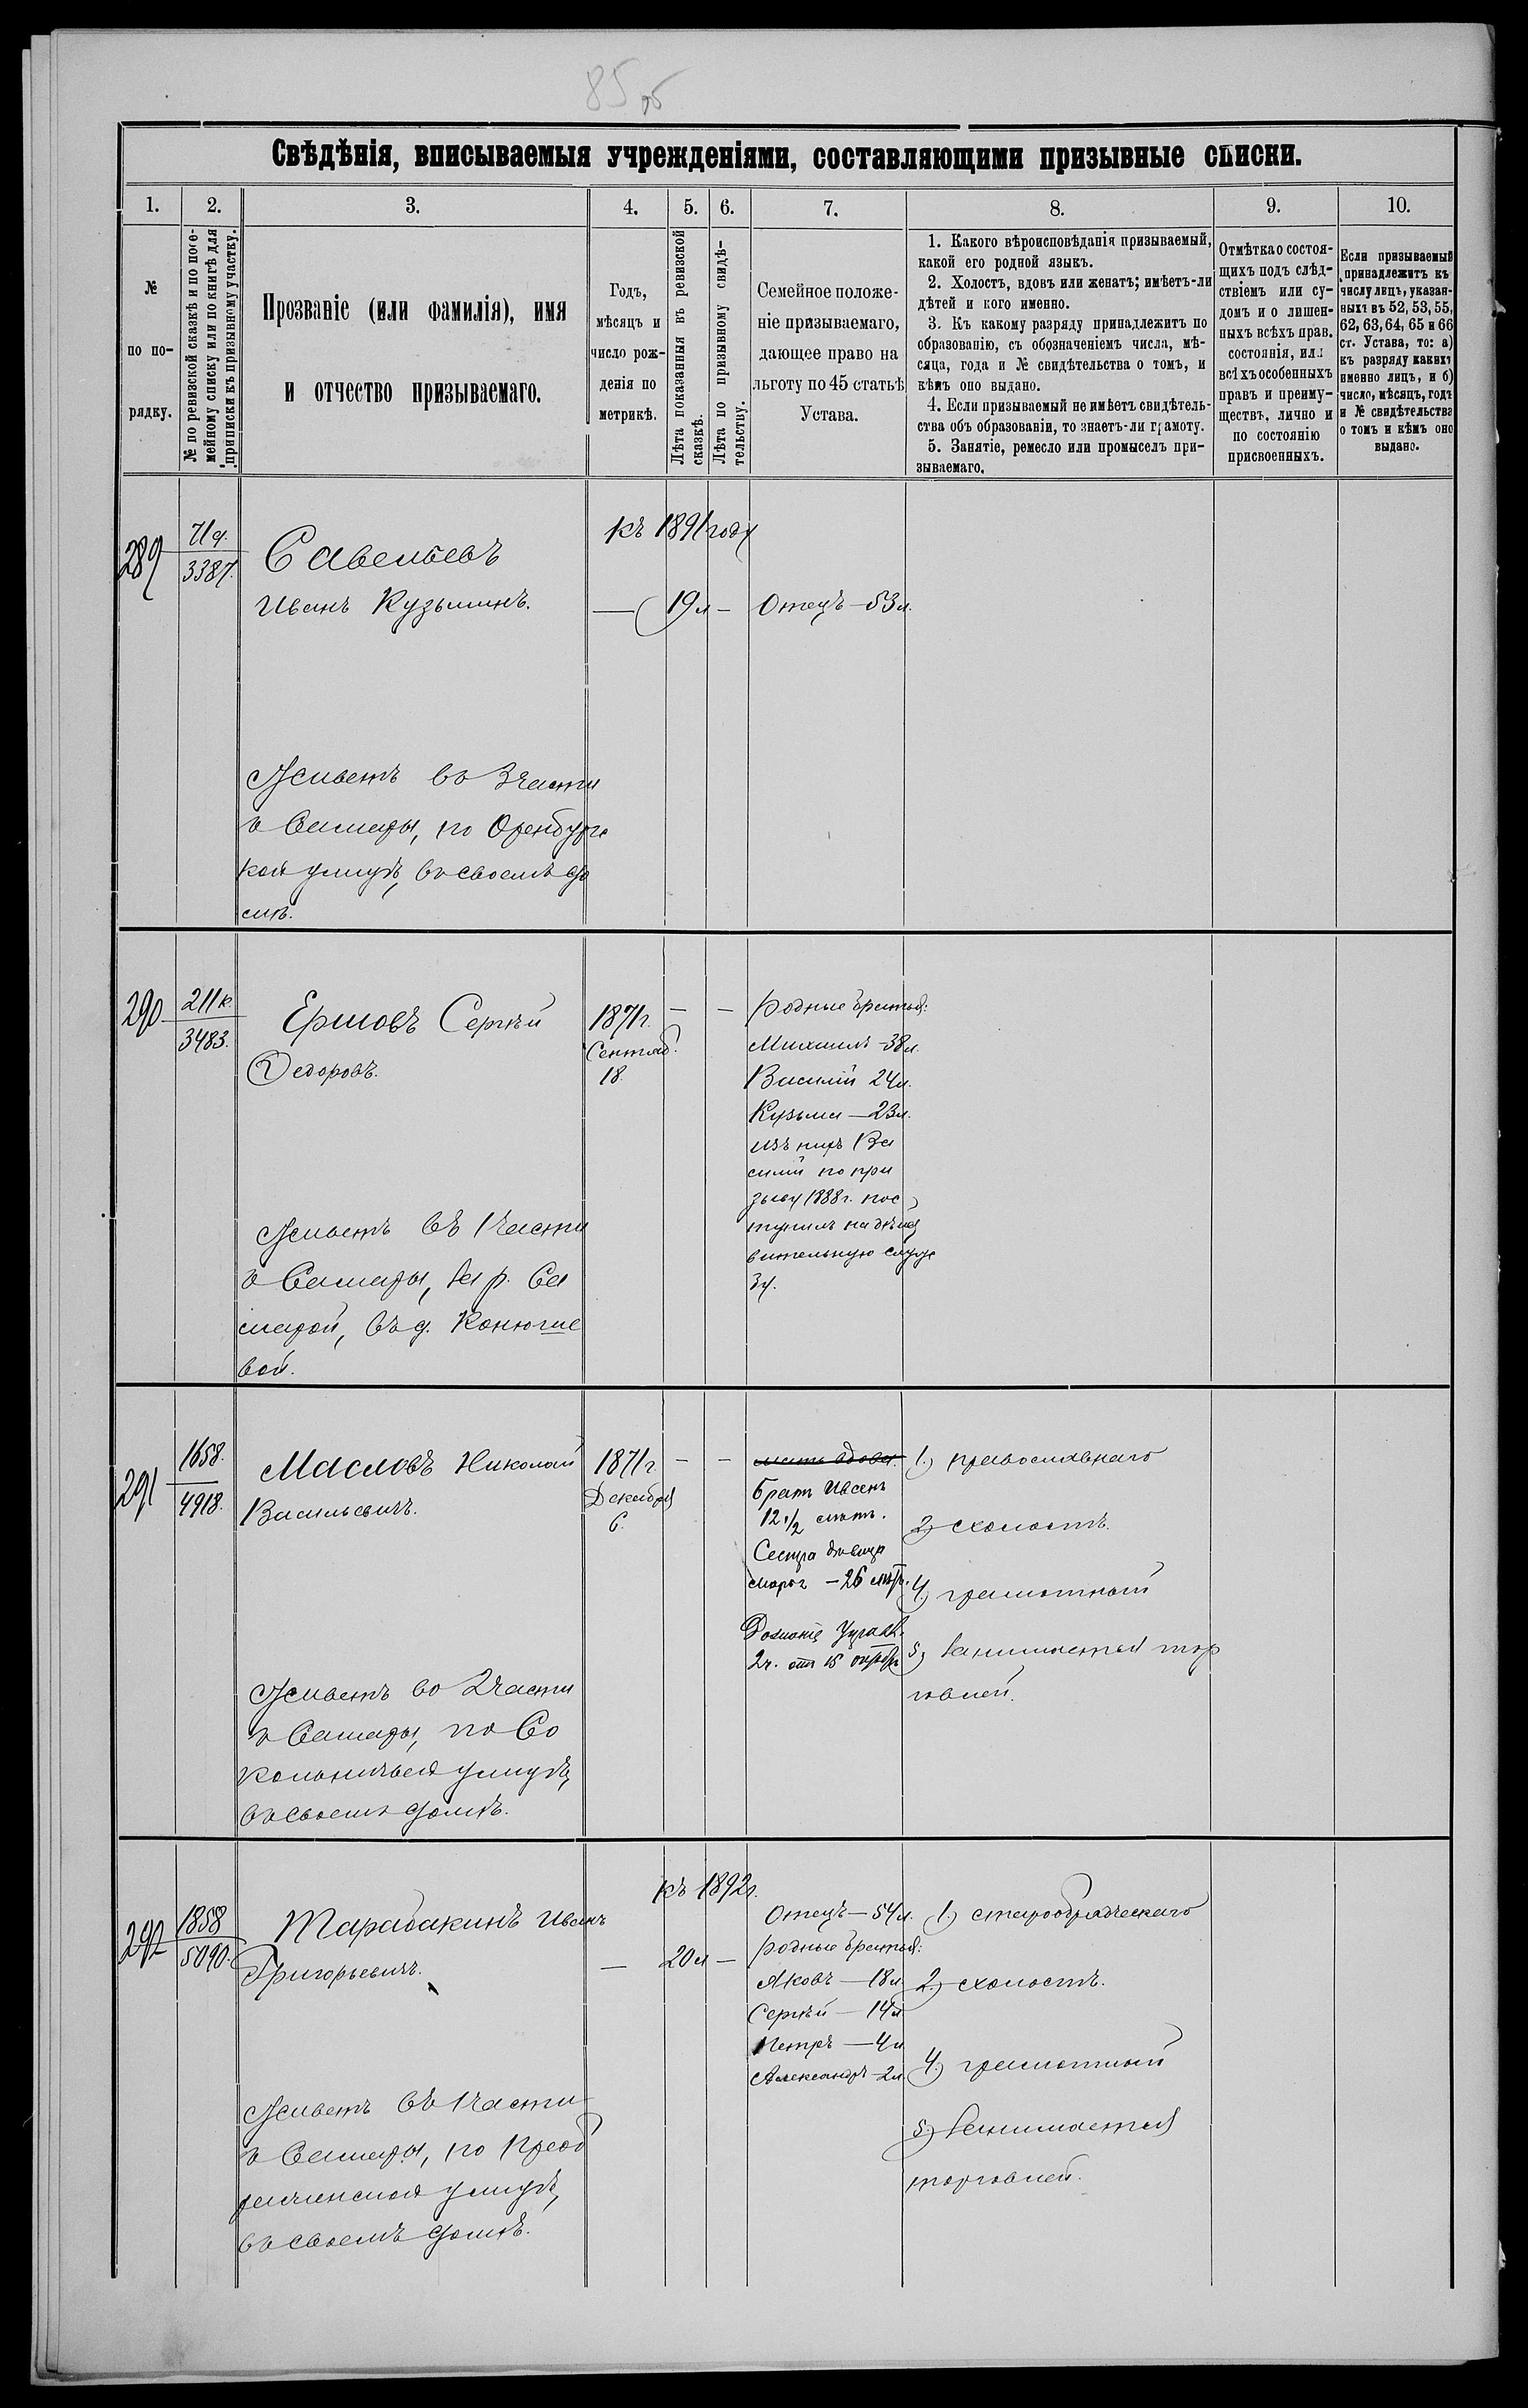 85 об
Свѣдѣнія, вписываемыя учрежденіями, составляющими призывные списки.
1.
2.
3.
4.
5.
6.
7.
8.
9.
10.
№
по по-
рядку.
№ по ревизской сказкѣ и по посе-
мейному списку или по книгѣ для
приписки къ призывному участку.
Прозваніе (или фамилія), имя
и отчество призываемаго.
Годъ,
мѣсяцъ и
число рож-
денія по
метрикѣ.
Лѣта показанныя въ ревизской
сказкѣ.
Лѣта по призывному свидѣ-
тельству.
Семейное положе-
ніе призываемаго,
дающее право на
льготу по 45 статьѣ
Устава.
1. Какого вѣроисповѣданія призываемый,
какой его родной языкъ.
2. Холостъ, вдовъ или женатъ; имѣетъ-ли
дѣтей и кого именно.
3. Къ какому разряду принадлежитъ по
образованію, съ обозначеніемъ числа, мѣ-
сяца, года и № свидѣтельства о томъ, и
кѣмъ оно выдано.
4. Если призываемый не имѣетъ свидѣтель-
ства объ образованіи, то знаетъ-ли грамоту.
5. Занятіе, ремесло или промыселъ при-
зываемаго.
Отмѣтка о состоя-
щихъ подъ слѣд-
ствіемъ или су-
домъ и о лишен-
ныхъ всѣхъ прав.
состоянія, или
всѣхъ особенныхъ
правъ и преиму-
ществъ, лично и
по состоянію
присвоенныхъ.
Если призываемый
принадлежитъ къ
числу лицъ, указан-
ныхъ въ 52, 53, 55,
62, 63, 64, 65 и 66
ст. Устава, то: а)
къ разряду какихъ
именно лицъ, и б)
число, мѣсяцъ, годъ
и № свидѣтельства
о томъ и кѣмъ оно
выдано.
289
71д.
3387.
Савельевъ
Иванъ Кузьминъ.
къ 1891 году
— 19л —
Отецъ — 53л.
Живетъ во 3 части
г Самары, по Оренбургс
кой улицѣ, въ своемъ до
мѣ.
290
211к
3483.
Ершовъ Сергѣй
Федоровъ.
1871г.
Сентяб.
18.
— —
Родные братья:
Михаилъ — 38л.
Василій 24л.
Кузьма — 23л.
изъ нихъ Ва
силій по при
зыву 1888г. пос
тупилъ на дѣйс
вительную служ
бу.
Живетъ въ 1 части
г Самары, за р. Са
марой, въ д. Конюгше
вой.
291
1658.
4918.
Масловъ Николай
Васильевичъ.
1871г.
Декабря
6.
— —
мать вдова
братъ Иванъ
12 1/2 лѣтъ.
Сестра дѣвица
— 26 лѣтъ.
2ч. отъ 15 октября
1.) православнаго
2) холостъ.
4.) грамотный
5) занимается тор
говлей.
Живетъ во 2 части
г Самары, по Со
кольничьей улицѣ,
въ своемъ домѣ.
292
1858
5090.
Тарабакинъ Иванъ
Григорьевичъ.
къ 1892г.
— 20л —
Отецъ — 54л.
Родные братья:
Яковъ — 18л
Сергѣй — 14л
Петръ — 4л
Александръ — 2л
1.) старообрядческаго
2.) холостъ.
4.) грамотный
5.) занимается
торговлей.
Живетъ въ 1 части
г Самары, по Преоб
раженской улицѣ,
въ своемъ домѣ.